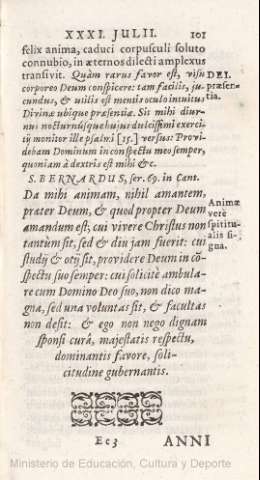 XXXI. JULII. 101
felix anima, caduci corpusculi soluto
connubio, in æternos dilecti amplexus
transivit. Quàm rarus favor est, visu
corporeo Deum conspicere: tam facilis, ju-
cundus, & utilis est mentis oculo intuitus
Divinæ ubique præsentiæ. Sit mihi diur-
nus nocturnúsque hujus dulcissimi exerci-
tij monitor ille psalmi [15.] versus: Provi-
debam Dominum in conspectu meo semper,
quoniam à dextris est mihi &c.
DEI.
præsen-
tia.
S. BERNARDUS, ser. 69. in Cant.
Da mihi animam, nihil amantem,
præter Deum, & quod propter Deum
amandum est; cui vivere Christus non
tantùm sit, sed & diu jam fuerit: cui
studij & otij sit, providere Deum in cō-
spectu suo semper: cui solicitè ambula-
re cum Domino Deo suo, non dico ma-
gna, sed una voluntas sit, & facultas
non desit: & ego non nego dignam
sponsi curâ, majestatis respectu,
dominantis favore, soli-
citudine gubernantis.
Animæ
verè
spiritu-
alis si-
gna.
Ee3 ANNI
Ministerio de Educación, Cultura y Deporte